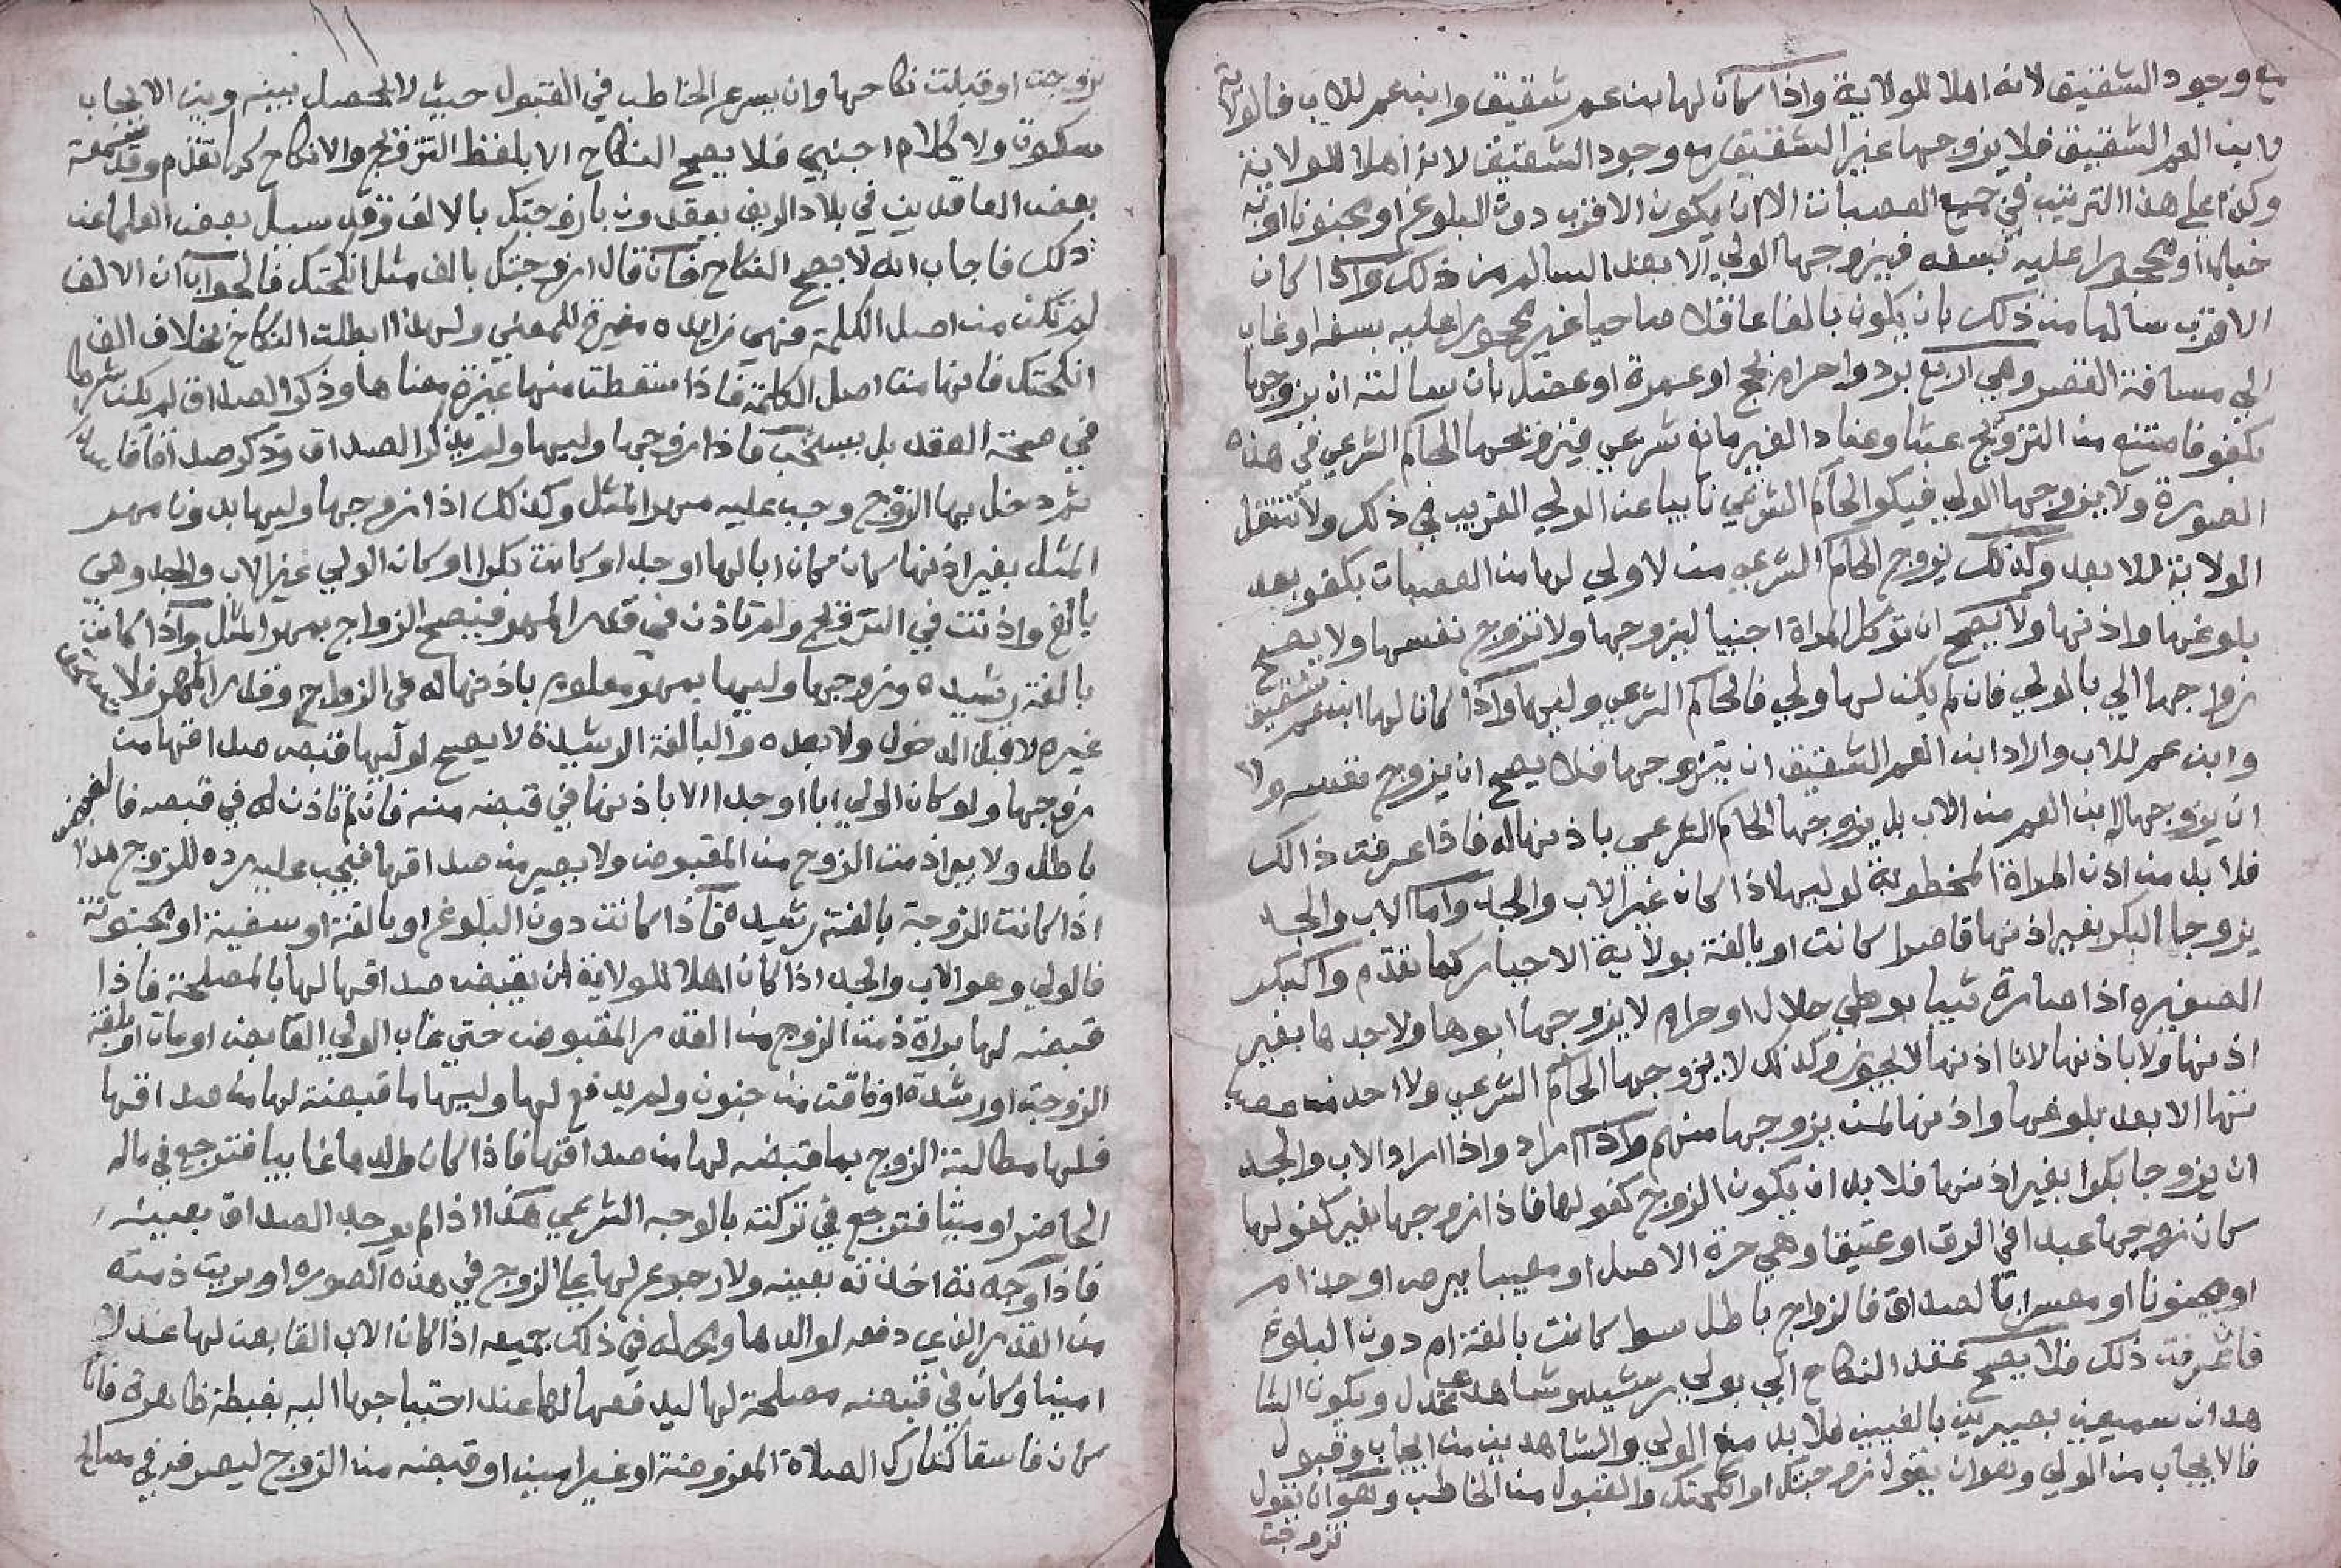 مع وجود الشقيق لانه اهلا للولاية واذا كان لها ابن عم شقيق وابن عم للاب فالولاية
لابن العم الشقيق فلا يزوجها غير الشقيق مع وجود الشقيق لانه اهلا للولاية
وكذا على هذا الترتيب في جميع العصبات الا ان يكون الاقرب دون البلوغ او مجنونا او به
خبال او محجورا عليه بسفه فيزوجها الولي الابعد السالم من ذلك واذا كان
الاقرب سالما من ذلك بان يكون بالغا عاقلا صاحيا غير محجورا عليه بسفه او غاب
الي مسافة القصر وهي اربع برد واحرام بحج او عمرة او عضل بان سالته ان يزوجها
بكفو فامتنع من التزويج عبثا وعنادا لغير مانع شرعي فيزوجها الحاكم الشرعي في هذه
الصورة ولا يزوجها الولي فيكوا الحاكم الشرعي نايبا عن الولي القريب في ذلك ولا تنتقل
الولاية للابعد وكذلك يزوج الحاكم الشرعي من لا ولي لها من العصبات بكفو بعد
بلوغها واذنها ولا يصح ان توكل المراة اجنبيا ليزوجها ولا تزوج نفسها ولا يصح
زواجها الي بالولي فان لم يكن لها ولي فالحاكم الشرعي وليها واذا كان لها ابن عم شقيق
وابن عم للاب واراد ابن العم الشقيق ان يتزوجها فلا يصح ان يزوج نفسه ولا
ان يزوجها له ابن العم من الاب بل يزوجها الحاكم الشرعي باذنها له فاذا عرفت ذالك
فلا بد من اذن المراة المخطوبة لوليها اذا كان غير الاب والجد واما الاب والجد
يزوجا البكر بغير اذنها قاصرا كانت او بالغة بولاية الاجبار كما تقدم والبكر
الصغيره اذا صارة ثيبا بوطي حلال او حرام لا يزوجها ابوها ولا جدها بغير
اذنها ولا باذنها لانا اذنها لا يجوز وكذلك لا يزوجها الحاكم الشرعي ولا احد من عصبا
تها الا بعد بلوغها واذنها لمن يزوجها منهم واذا اراد واذا اراد الاب والجد
ان يزوجا بكرا بغير اذنها فلا بد ان يكون الزوج كفو لها فاذا زوجها بغير كفو لها
كان زوجها عبدا في الرق او عتيقا وهي حرة الاصل او معيبا ببرص او جذام
او مجنونا او معسرا بالصداق فالزواج باطل سوا كانت بالغة ام دون البلوغ
فاذا عرفت ذلك فلا يصح عقد النكاح الي بولي رشيد وشاهدي عدل ويكون الشا
هدان سميعين بصيرين بالغيين فلا بد مع الولي والشاهدين من ايجاب وقبول
فالايجاب من الولي وهو ان يقول زوجتك او انكحتك والقبول من الخاطب وهو ان يقول
تزوجت
تزوجت او قبلت نكاحها وان يسرع الخاطب في القبول حيث لا يحصل بينه وبين الايجاب
سكوت ولا كلام اجنبي فلا يصح النكاح الا بلفظ التزويج والانكاح كما تقدم وقد سمعة
بعض العاقدين في بلاد الريف يعقدون بازوجتك بالالف وقد سيل بعض العلما عن
ذلك فاجاب انه لا يصح النكاح فان قال ازوجتك بالف مثل انكحتك فالجواب ان الالف
لم تكن من اصل الكلمة فهي زايده مغيرة للمعني ولهذا ابطلت النكاح بخلاف الف
انكحتك فانها من اصل الكلمة فاذا سقطت منها غيرة معناها وذكر الصداق لم يكن شرطا
في صحة العقد بل يستحب فاذا زوجها وليها ولم يذكر الصداق وذكر صداقا فاسدا
ثم دخل بها الزوج وجب عليه مهر المثل وكذلك اذا زوجها وليها بدون مهر
المثل بغير اذنها سان كان ابا لها او جد او كانت بكرا او كان الولي غير الاب والجد وهي
بالغ واذنت في التزويج ولم تاذن في قدر المهر فيصح الزواج بمهر المثل واذا كانت
بالغة رشيده وزوجها وليها بمهر معلوم باذنها له في الزواج وقدر المهر فلا يستحق
غيره لا قبل الدخول ولا بعده والبالغة الرشيدة لا يصح لوليها قبض صداقها من
زوجها ولو كان الولي ابا او جدا الا باذنها في قبضه منه فان لم تاذن له في قبضه فالقبض
باطل ولا يبرا ذمت الزوج من المقبوض ولا يصير من صداقها فيجب عليه رده للزوج هذا
اذا كانت الزوجة بالغة رشيده فاذا كانت دون البلوغ او بالغة او سفيهة او مجنونة
فالولي وهو الاب والجد اذا كان اهلا للولاية ان يقبض صداقها لها بالمصلحة فاذا
قبضه لها براة ذمت الزوج من القدر المقبوض حتي غاب الولي القابض او مات او بلغة
الزوجة او رشدة او فاقت من جنون ولم يدفع لها وليها ما قبضته لها من صداقها
فلها مطالبة الزوج بما قبضه لها من صداقها فاذا كان والدها غايبا فترجع في ماله
الحاضر او ميتا فترجع في تركته بالوجه الشرعي هذا اذا لم يوجد الصداق بعينه
فاذا وجدته اخذته بعينه ولا رجوع لها على الزوج في هذه الصوره او بريت ذمته
من القدر الذي دفعه لوالدها ومحله في ذلك جميعه اذا كان الاب القابض لها عدلا
امينا وكان في قبضه مصلحة لها ليدفعها لها عند احتياجها اليه بغبطة ظاهرة فان
كان فاسقا كتارك الصلاة المفروضة او غير امين او قبضه من الزوج ليصرفه في مصالح